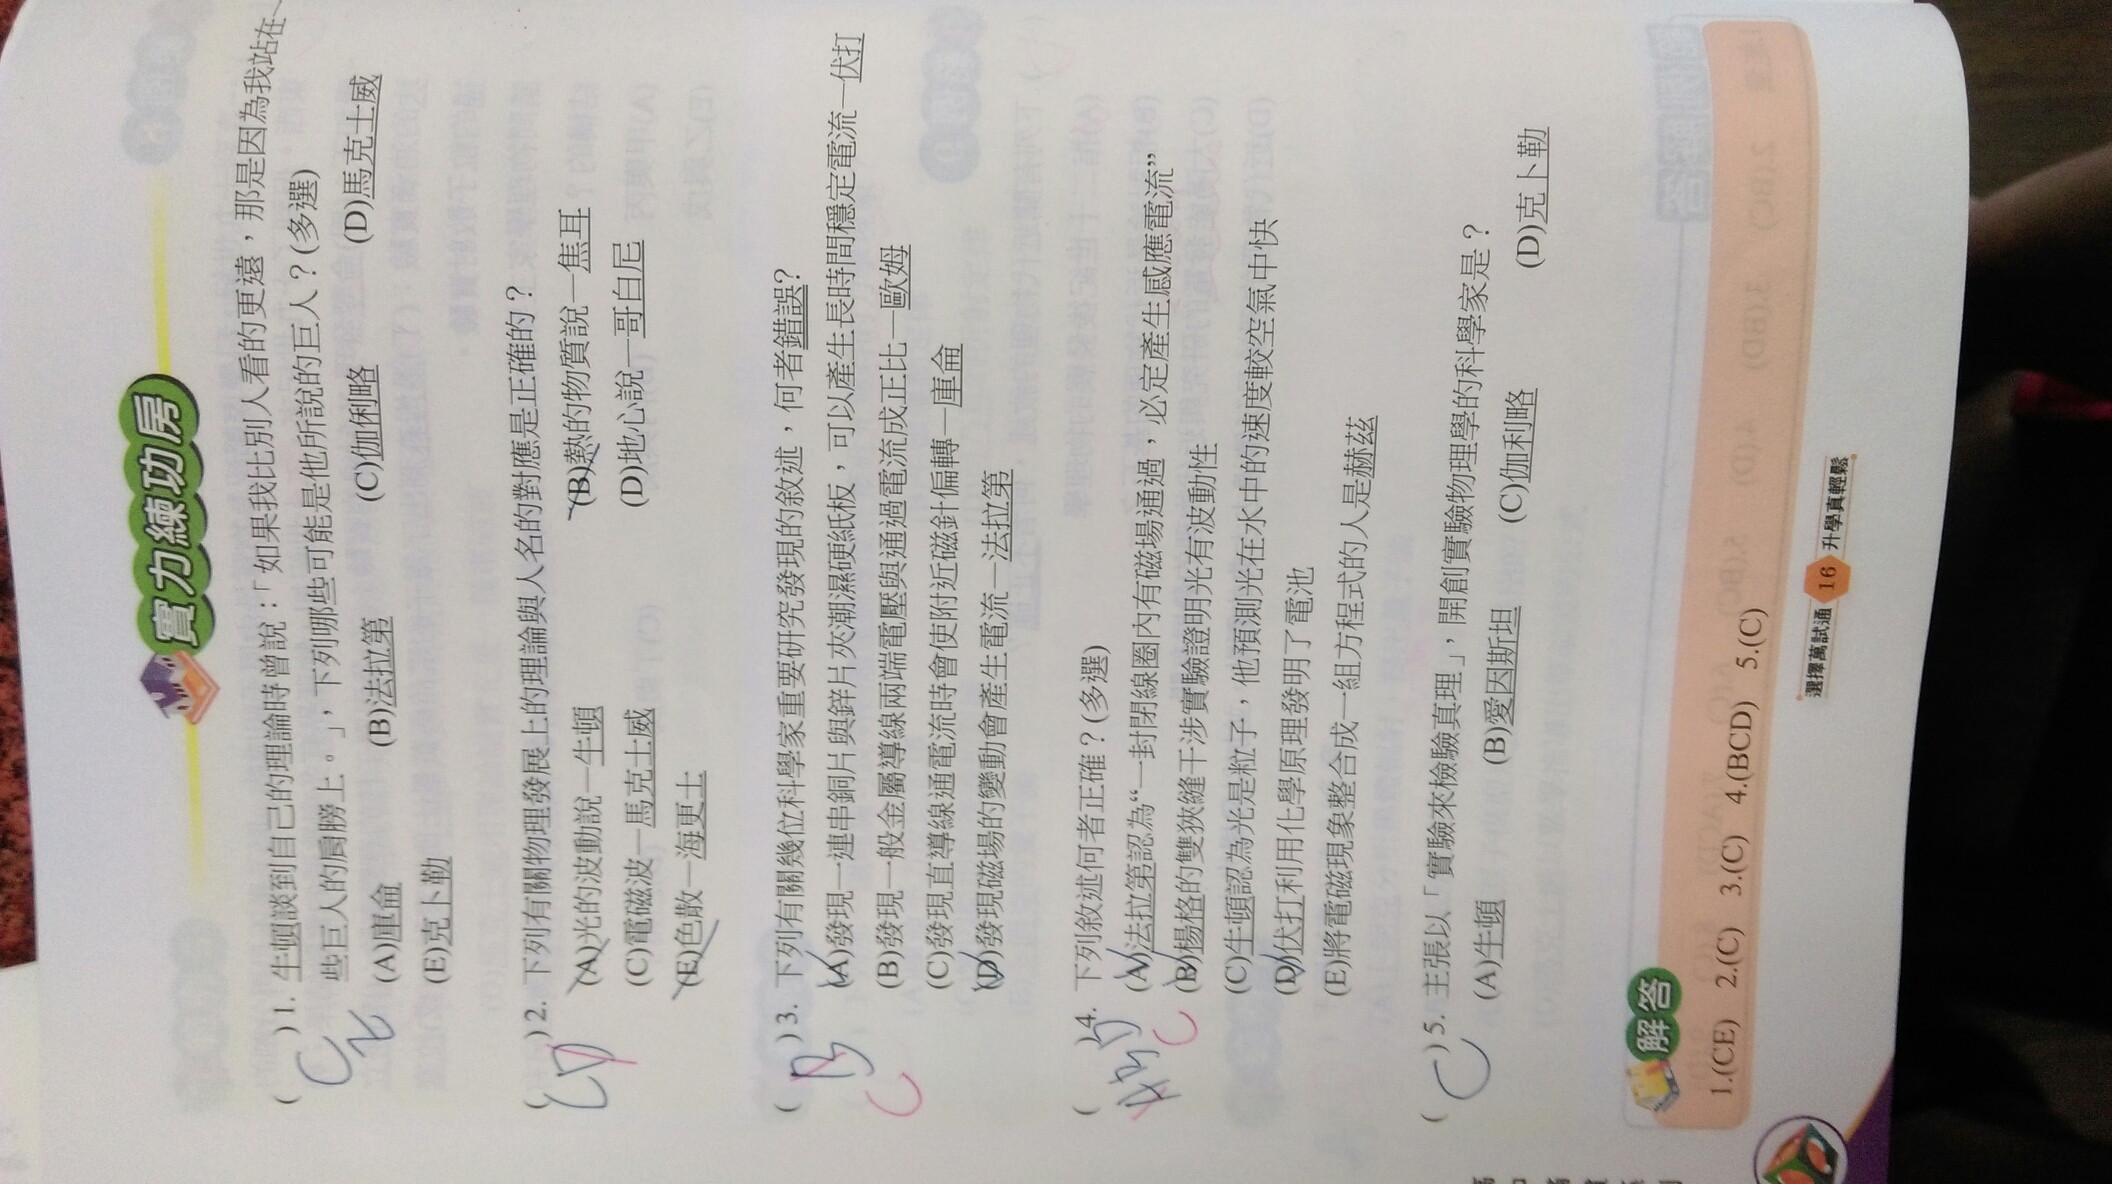 實力練功房
( CE )1. 牛頓談到自己的理論時曾說：「如果我比別人看的更遠，那是因為我站在
些巨人的肩膀上。」，下列哪些可能是他所說的巨人？(多選)
(A)庫侖 (B)法拉第 (C)伽俐略 (D)馬克士威
(E)克卜勒
( CD )2. 下列有關物理發展上的理論與人名的對應是正確的？
(A)光的波動說—牛頓 (B)熱的物質說—焦耳
(C)電磁波—馬克士威 (D)地心說—哥白尼
(E)色散—海更士
( B )3. 下列有關幾位科學家重要研究發現的敘述，何者錯誤?
C
(A)發現一連串銅片與鋅片夾潮濕硬紙板，可以產生長時間穩定電流—伏打
(B)發現一般金屬導線兩端電壓與通過電流成正比—歐姆
(C)發現直導線通電流時會使附近磁針偏轉—庫侖
(D)發現磁場的變動會產生電流—法拉第
( )4. 下列敘述何者正確？(多選)
C
(A)法拉第認為“一封閉線圈內有磁場通過，必定產生感應電流”
(B)楊格的雙狹縫干涉實驗證明光有波動性
(C)牛頓認為光是粒子，他預測光在水中的速度較空氣中快
(D)伏打利用化學原理發明了電池
(E)將電磁現象整合成一組方程式的人是赫茲
( C )5. 主張以「實驗來檢驗真理」，開創實驗物理學的科學家是？
(A)牛頓 (B)愛因斯坦 (C)伽利略 (D)克卜勒
解答
1.(CE) 2.(C) 3.(C) 4.(BCD) 5.(C)
選擇萬試通 16 升學真輕鬆